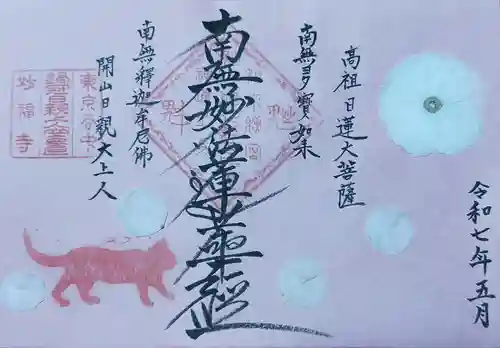 令和七年五月
高祖日蓮大菩薩
南無多寶如来
南無妙法蓮華経
南無釋迦牟尼佛
開山日観大上人
東京谷中
妙福寺